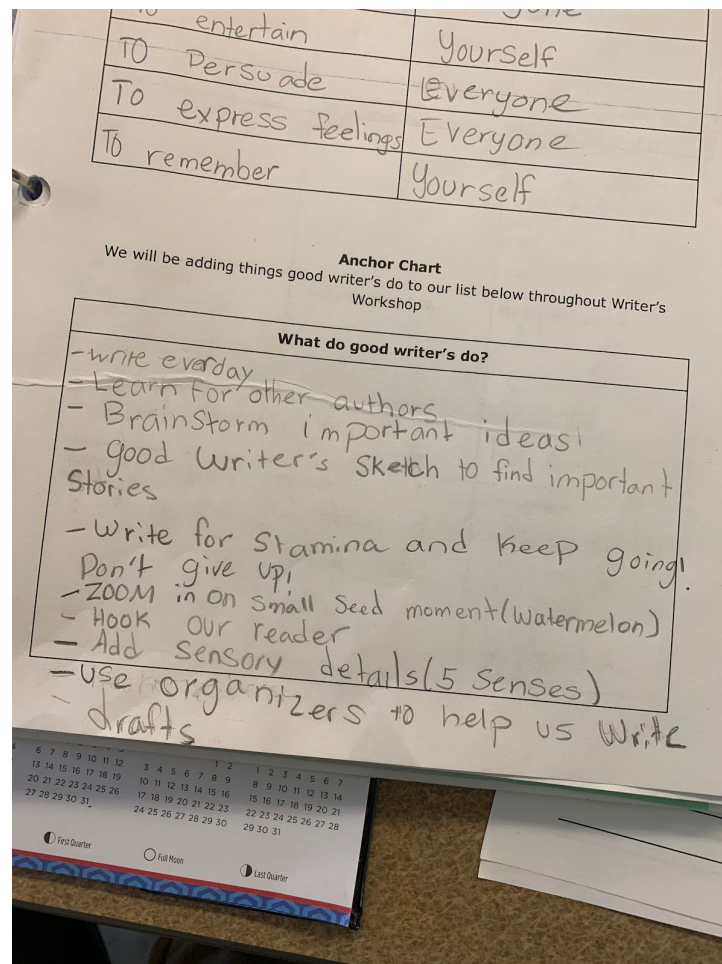 entertain
yourself
To Persuade
Everyone
To express feelings
Everyone
To remember
yourself
Anchor Chart
We will be adding things good writer's do to our list below throughout Writer's
Workshop
What do good writer's do?
-write everday
- Learn for other authors
- BrainStorm important ideas!
- good writer's sketch to find important
Stories
- Write for Stamina and keep going!
Don't give up!
- ZOOM in on small seed moment (watermelon)
- Hook our reader
- Add sensory details (5 senses)
- use organizers to help us write
drafts
6 7 8 9 10 11 12
13 14 15 16 17 18 19
20 21 22 23 24 25 26
27 28 29 30 31
1 2
3 4 5 6 7 8 9
10 11 12 13 14 15 16
17 18 19 20 21 22 23
24 25 26 27 28 29 30
1 2 3 4 5 6 7
8 9 10 11 12 13 14
15 16 17 18 19 20 21
22 23 24 25 26 27 28
29 30 31
First Quarter
Full Moon
Last Quarter